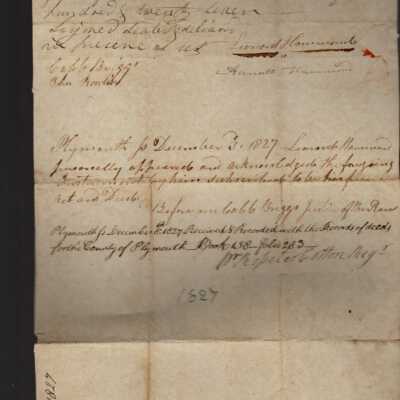 hundred & twenty seven
Signed sealed & deliverd
in presence of us Leonard Hammond
Cobb Briggs
Hammond
Plymouth ss December 3. 1827. Leonard Hammond
personally appeared and acknowledged the forgoing
Instrument by him subscribed to be his free
act and Deed.
Before me Cobb Briggs Justice of the Peace
Plymouth ss December 8. 1827 Received & Recorded with the Records of deeds
for the County of Plymouth Book 158 folio 263
Pr Rossiter Cotton Regr
1827
1827